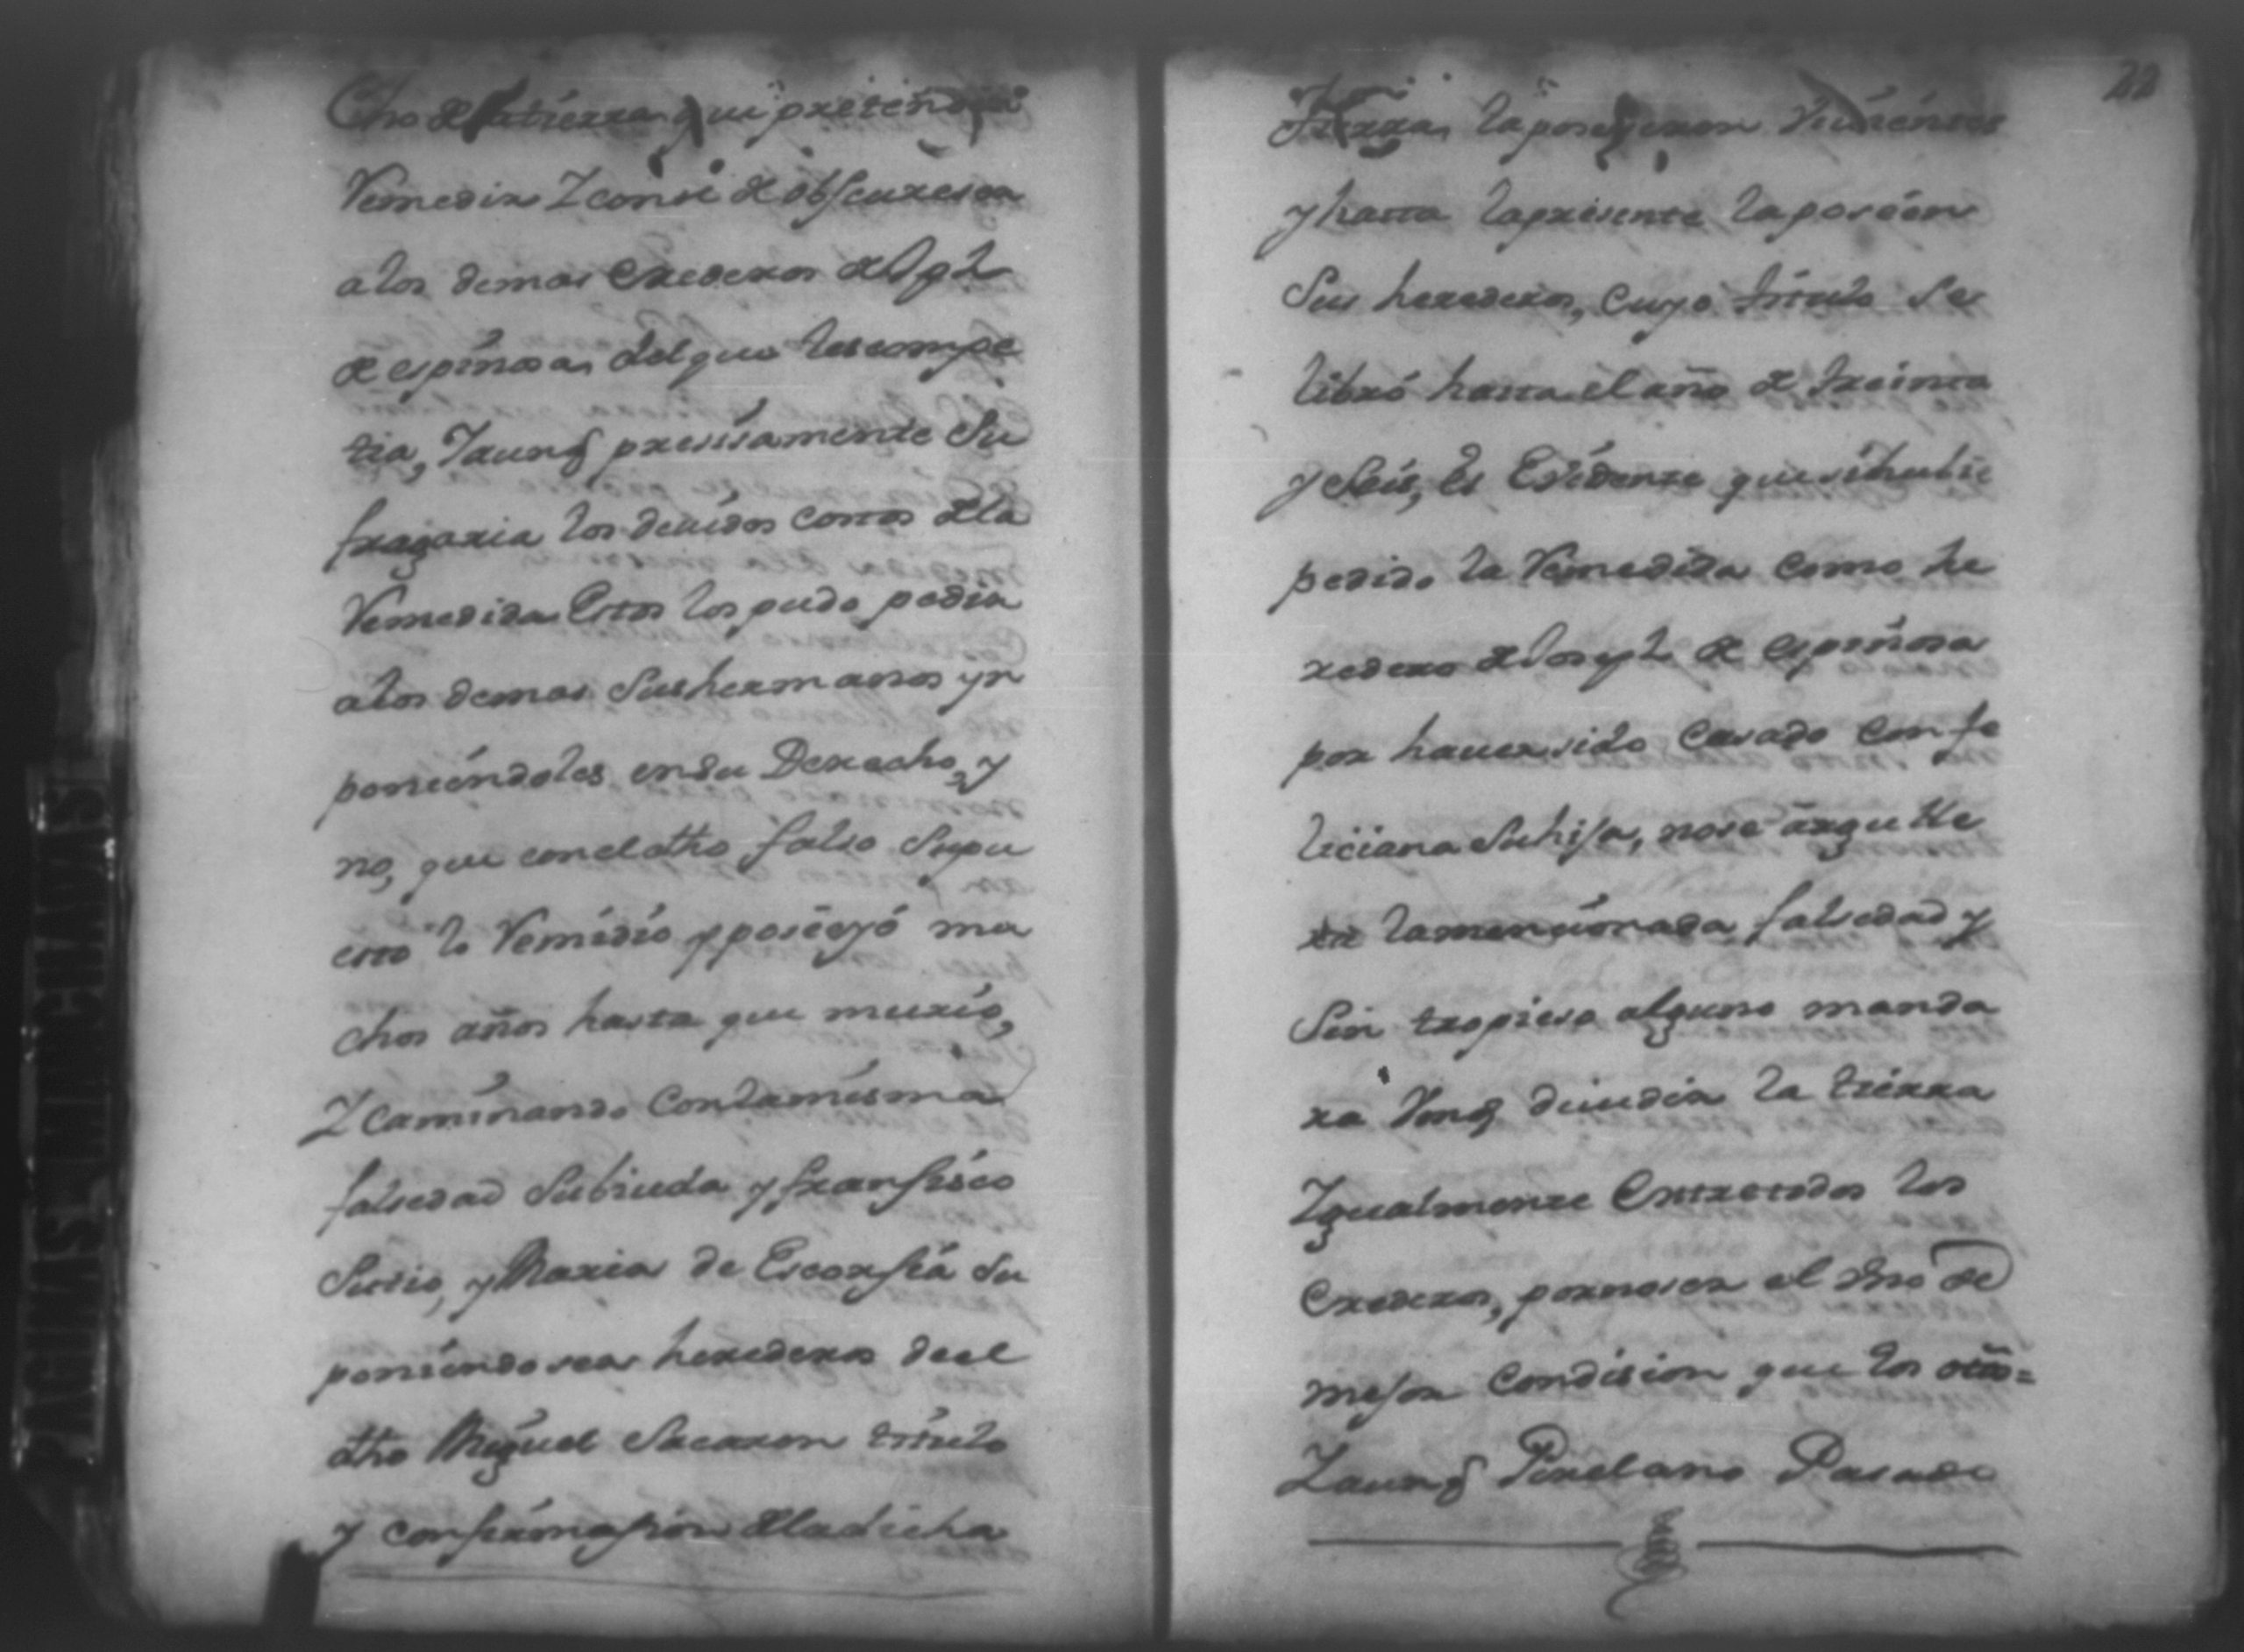 cho de la tierra que pretendia
Remedir Y con si de obscuresea
a los demas erederos de Jph
de espinosa, del que les compe
tia, Yaunq presisamente Su
fragaria los deuidos costos de la
Remedida Estos los pudo pedir
a los demas Sus hermanos yn
poniendoles en su Derecho, y
no, que con el dho falso Supu
esto lo Remidio y poseyó mu
chos años hasta que murio,
Y Caminando Con la misma
falsedad Su biuda y franfisco
Sirio, y Maria de Escorfia Su
poniendo sea herederos de el
dho Miguel Sacaron titulo
y confirmasion de la dicha
22
tierra, la poseyeron
y hasta la presente la poseen
Sus herederos, Cuyo titulo Se
libró hasta el año de treinta
y Seis, Es Evidente que si hubie
pedido la Remedida Como he
redero de Joseph de espinosa
por hauer sido Casado Con fe
liciana Su hija, no se argulle
ra la mensionada falsedad y
Sin tropieso alguno manda
ra Vmd diuidir la tierra
Ygualmente Entre todos los
Erederos, por no ser el Uno de
mejor Condision que los otros=
Yaunq Perelano Pasado